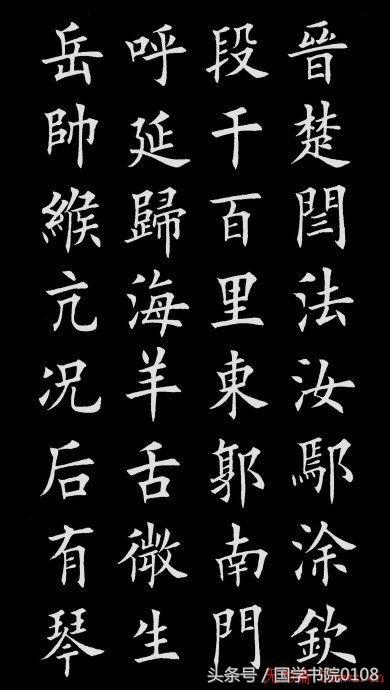 晉楚閆法汝鄢涂欽
段干百里東郭南門
呼延歸海羊舌微生
岳帥緱亢况后有琴
头条号 / 国学书院0108